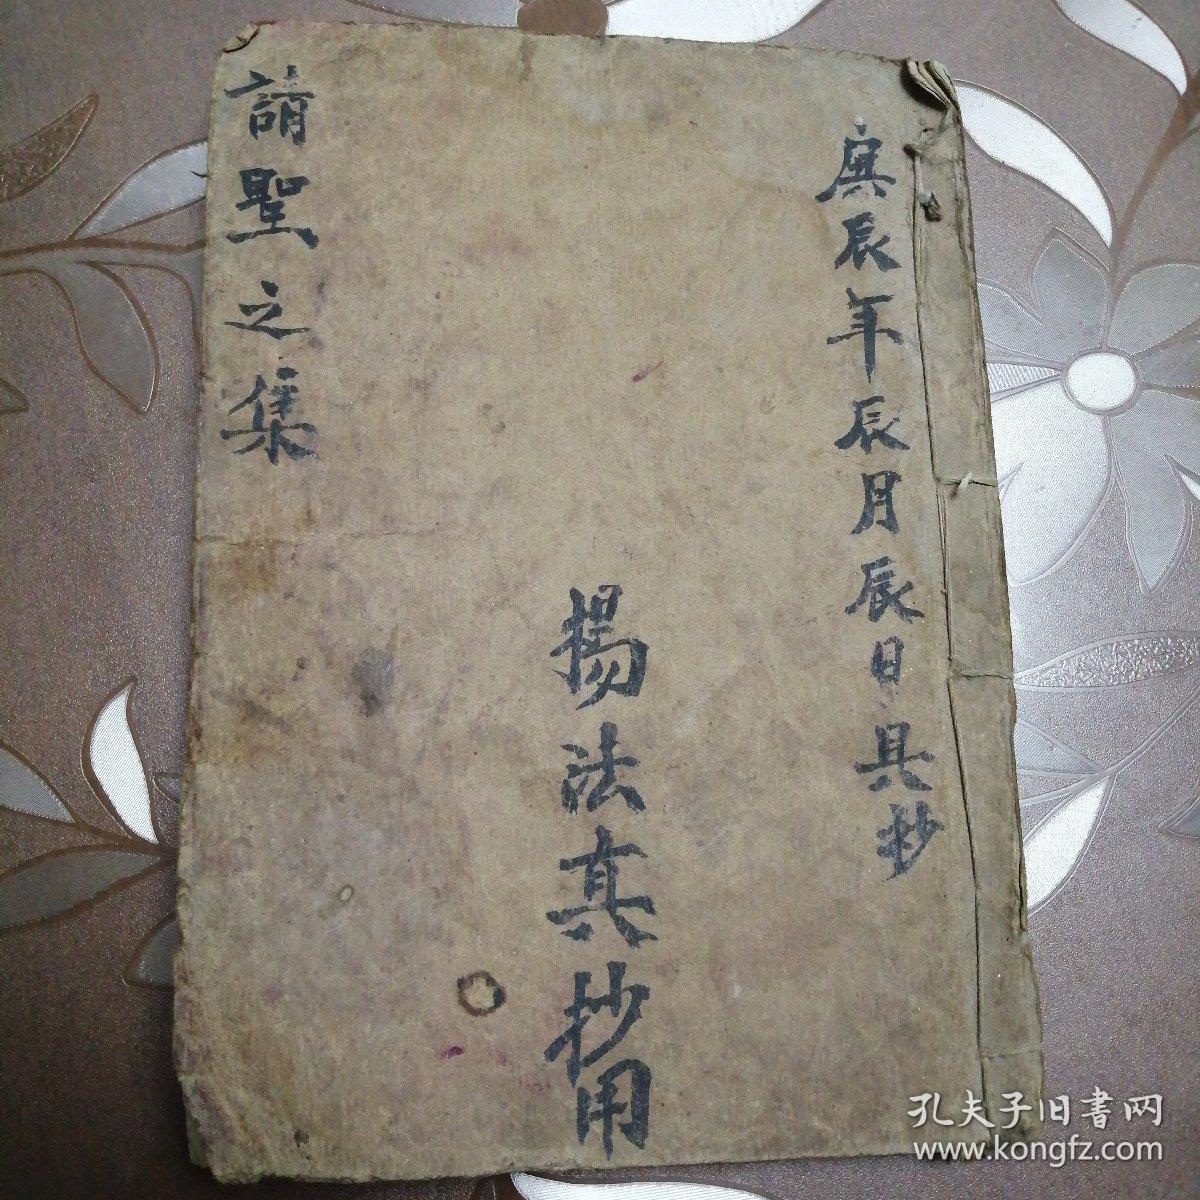 庚辰年辰月辰日具抄
揚法真抄用
請聖之集
孔夫子旧書网
www.kongfz.com